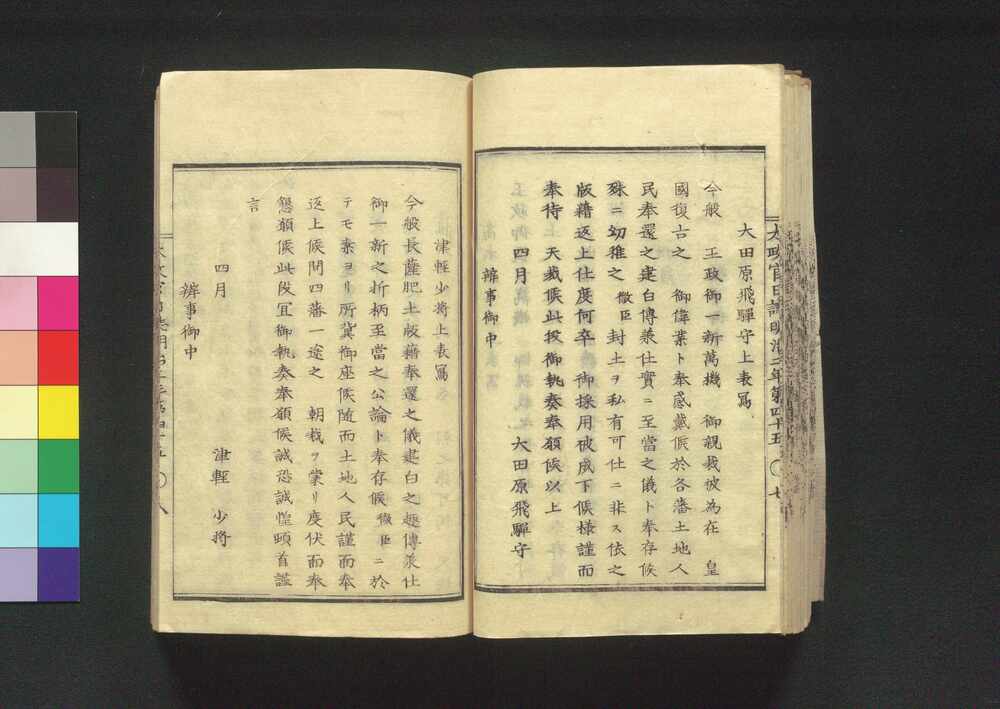 太政官日誌明治二年第四十五 〇 七
大田原飛騨守上表寫
今般　王政御一新萬機　御親裁被為在　皇
國復古之　御偉業ト奉感戴候於各藩土地人
民奉還之建白傳兼仕實ニ至當之儀ト奉存候
殊ニ幼稚之　微臣　封土ヲ私有可仕ニ非ス依之
版籍返上仕度何卒　御採用被成下候様謹而
奉待　天裁候此段御執奏奉願候以上
四月　大田原飛騨守
辨事御中
津輕少將上表寫
今般長薩肥土版籍奉還之儀建白之趣傳兼仕
御一新之折柄至當之公論ト奉存候　微臣ニ於
テモ素ヨリ所冀御座候随而土地人民謹而奉
返上候間四藩一途之　朝裁ヲ蒙リ度伏而奉
懇願候此段宜御執奏奉願候誠恐誠惶頓首謹
言
四月　津輕　少將
辨事御中